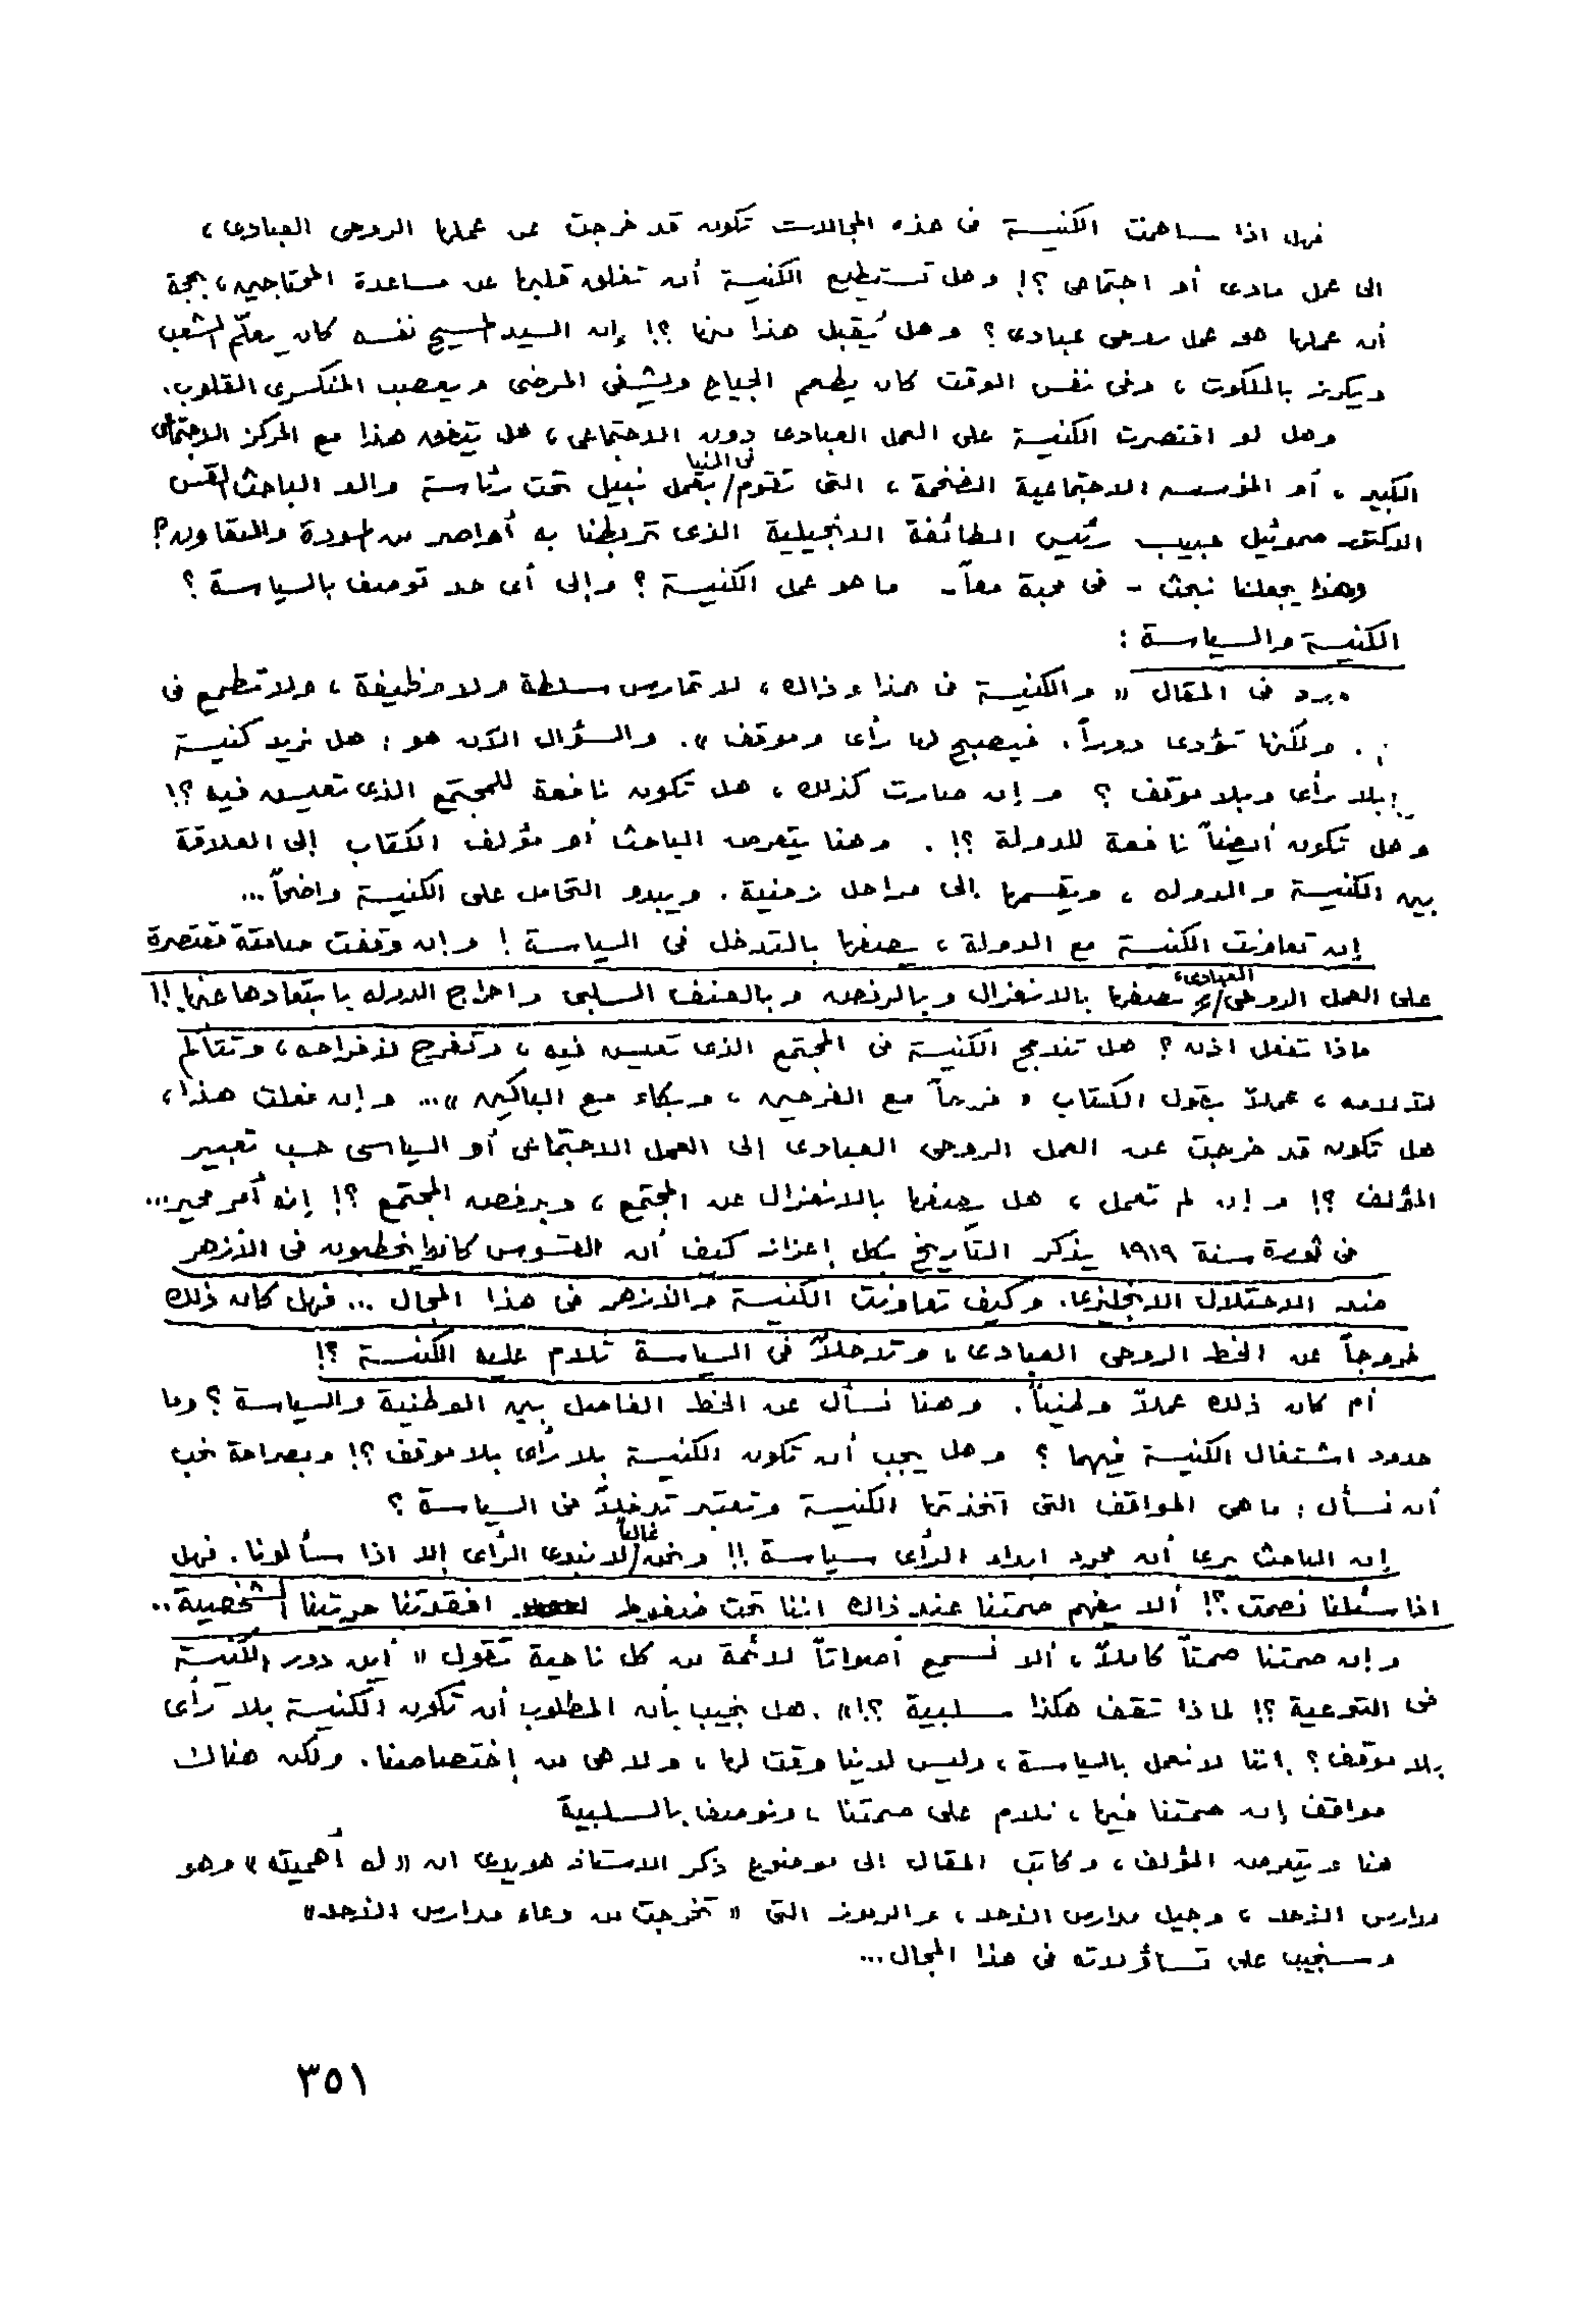 فهل اذا ساهمت الكنيسة فى هذه المجالات تكون قد خرجت عن عملها الروحى العبادى،
الى عمل مادى أو اجتماعى ؟! وهل تستطيع الكنيسة أن تغلق قلبها عن مساعدة المحتاجين، بحجة
أن عملها هو عمل روحى عبادى ؟ وهل يُقبل هذا منها ؟! إن السيد المسيح نفسه كان يعلّم الشعب
ويكرز بالملكوت، وفى نفس الوقت كان يطعم الجياع ويشفى المرضى ويعصب المنكسرى القلوب.
وهل لو اقتصرت الكنيسة على العمل العبادى دون الاجتماعى، هل يتفق هذا مع المركز الاجتماعى
الكبير، أو المؤسسه الاجتماعية الضخمة، التى تقوم/ فى المنيا بعمل نبيل تحت رئاسة والد الباحث القس
الدكتور صموئيل حبيب رئيس الطائفة الانجيلية الذى تربطنا به أواصر من المودة والتعاون؟
وهذا يجعلنا نبحث - فى محبة معاً - ما هو عمل الكنيسة ؟ وإلى أى حد توصف بالسياسة ؟
الكنيسة والسياسة :
ورد فى المقال « والكنيسة فى هذا وذاك، لا تمارس سلطة ولا وظيفة، ولا تطمع فى
. ولكنها تؤدى دوراً. فيصبح لها رأى وموقف ». والسؤال الآن هو : هل نريد كنيسة
بلا رأى وبلا موقف ؟ وإن صارت كذلك، هل تكون نافعة للمجتمع الذى تعيش فيه ؟!
وهل تكون أيضاً نافعة للدولة ؟! . وهنا يتعرض الباحث أو مؤلف الكتاب إلى العلاقة
بين الكنيسة والدوله، ويقسمها إلى مراحل زمنية. ويبدو التحامل على الكنيسة واضحاً...
إن تعاونت الكنيسة مع الدولة، يصفها بالتدخل فى السياسة ! وإن وقفت صامتة مقتصرة
على العمل الروحى/ العبادى، يصفها بالانعزال وبالرفض وبالعنف السلبى واحراج الدوله بابتعادها عنها !!
ماذا تفعل اذن ؟ هل تندمج الكنيسة فى المجتمع الذى تعيش فيه، وتفرح لأفراحه، وتتألم
لآلامه، عملاً بقول الكتاب « فرحاً مع الفرحين، وبكاء مع الباكين »... وإن فعلت هذا،
هل تكون قد خرجت عن العمل الروحى العبادى إلى العمل الاجتماعى أو السياسى حسب تعبير
المؤلف ؟! وإن لم تعمل، هل يصفها بالانعزال عن المجتمع، وبرفض المجتمع ؟! إنه أمر محير...
فى ثورة سنة ١٩١٩ يذكر التاريخ بكل إعزاز كيف أن القسوس كانوا يخطبون فى الأزهر
ضد الاحتلال الانجليزى. وكيف تعاونت الكنيسة والأزهر فى هذا المجال ... فهل كان ذلك
خروجاً عن الخط الروحى العبادى، وتدخلاً فى السياسة تلام عليه الكنيسة ؟!
أم كان ذلك عملاً وطنياً. وهنا نسأل عن الخط الفاصل بين الوطنية والسياسة ؟ وما
حدود اشتغال الكنيسة فيهما ؟ وهل يجب أن تكون الكنيسة بلا رأى بلا موقف ؟! وبصراحة نحب
أن نسأل : ما هى المواقف التى اتخذتها الكنيسة وتعتبر تدخلاً فى السياسة ؟
إن الباحث يرى أن مجرد ابداء الرأى سياسة !! ونحن/ غالباً لا نبدى الرأى إلا اذا سألونا. فهل
اذا سئلنا نصمت ؟! ألا يفهم صمتنا عند ذاك اننا تحت ضغوط افقدتنا حريتنا الشخصية..
وإن صمتنا صمتاً كاملاً، ألا نسمع أصواتاً لائمة من كل ناحية تقول « أين دور الكنيسة
فى التوعية ؟! لماذا تقف هكذا سلبية ؟!» . هل نجيب بأن المطلوب أن تكون الكنيسة بلا رأى
بلا موقف ؟ اننا لا نعمل بالسياسة، وليس لدينا وقت لها، ولا هى من إختصاصنا. ولكن هناك
مواقف إن صمتنا فيها، نلام على صمتنا، ونوصف بالسلبية
هنا ويتعرض المؤلف، وكاتب المقال إلى موضوع ذكر الاستاذ هويدى ان « له أهميته » وهو
مدارس الأحد، وجيل مدارس الأحد، والرموز التى « تخرجت من وعاء مدارس الأحد»
وسنجيب على تساؤلاته فى هذا المجال...
٣٥١